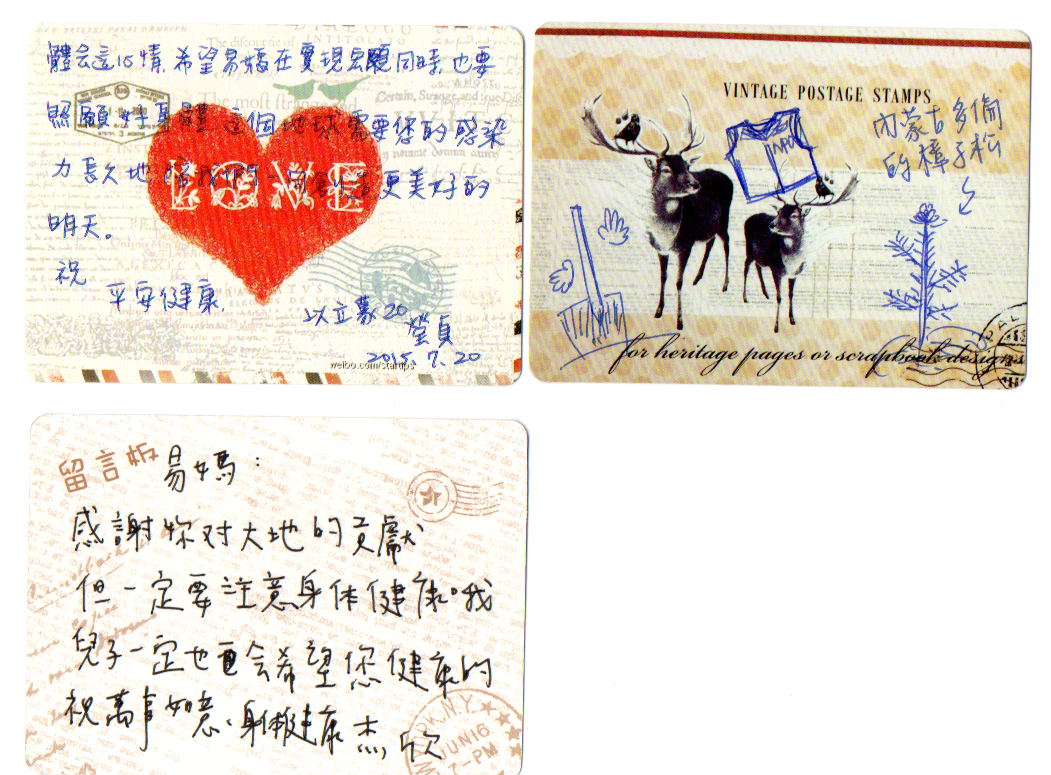 體会這份情,希望易媽在實現宏願同時,也要
照顧好身體 這個地球需要您的感染
力長久地 更美好的
明天。
祝
平安健康,
以立蒙20
瑩貞
2015.7.20
weibo.com/stamps
LOVE
VINTAGE POSTAGE STAMPS
內蒙古多倫
的樟子松
for heritage pages or scrapbook designs
留言板
易媽:
感謝你对大地的貢獻
但一定要注意身体健康。我
兒子一定也更会希望您健康的
祝萬事如意、身体健康 杰,欣